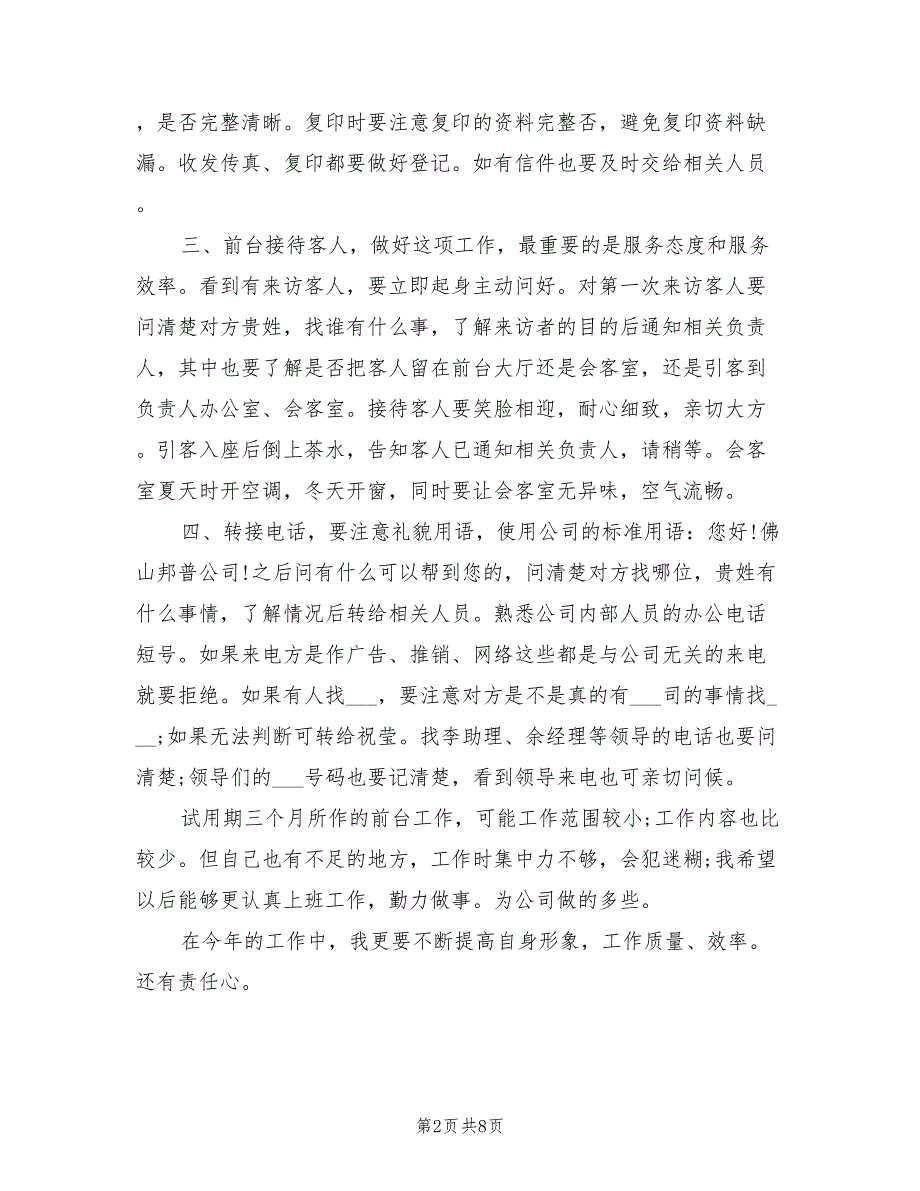 ，是否完整清晰。复印时要注意复印的资料完整否，避免复印资料缺
漏。收发传真、复印都要做好登记。如有信件也要及时交给相关人员
。
三、前台接待客人，做好这项工作，最重要的是服务态度和服务
效率。看到有来访客人，要立即起身主动问好。对第一次来访客人要
问清楚对方贵姓，找谁有什么事，了解来访者的目的后通知相关负责
人，其中也要了解是否把客人留在前台大厅还是会客室，还是引客到
负责人办公室、会客室。接待客人要笑脸相迎，耐心细致，亲切大方
。引客入座后倒上茶水，告知客人已通知相关负责人，请稍等。会客
室夏天时开空调，冬天开窗，同时要让会客室无异味，空气流畅。
四、转接电话，要注意礼貌用语，使用公司的标准用语：您好!佛
山邦普公司!之后问有什么可以帮到您的，问清楚对方找哪位，贵姓有
什么事情，了解情况后转给相关人员。熟悉公司内部人员的办公电话
短号。如果来电方是作广告、推销、网络这些都是与公司无关的来电
就要拒绝。如果有人找___，要注意对方是不是真的有___司的事情找_
__;如果无法判断可转给祝莹。找李助理、余经理等领导的电话也要问
清楚;领导们的___号码也要记清楚，看到领导来电也可亲切问候。
试用期三个月所作的前台工作，可能工作范围较小;工作内容也比
较少。但自己也有不足的地方，工作时集中力不够，会犯迷糊;我希望
以后能够更认真上班工作，勤力做事。为公司做的多些。
在今年的工作中，我更要不断提高自身形象，工作质量、效率。
还有责任心。
第2页 共8页